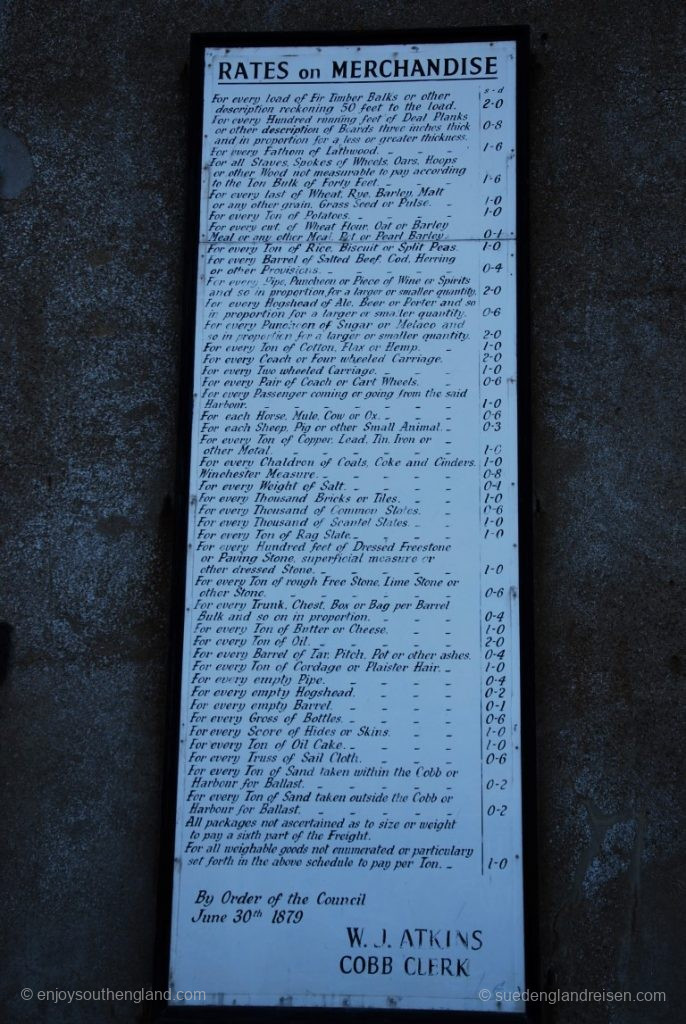 RATES on MERCHANDISE
s - d
For every load of Fir Timber Balks or other
description reckoning 50 feet to the load. 2-0
For every Hundred running feet of Deal Planks
or other description of Boards three inches thick 0-8
and in proportion for a less or greater thickness.
For every Fathom of Lathwood. - - - 1-6
For all Staves, Spokes of Wheels, Oars, Hoops
or other Wood not measurable to pay according
to the Ton Bulk of Forty Feet. - - - 1-6
For every last of Wheat, Rye, Barley, Malt
or any other grain, Grass Seed or Pulse. - 1-0
For every Ton of Potatoes. - - - - 1-0
For every cwt. of Wheat Flour, Oat or Barley
Meal or any other Meal, Pot or Pearl Barley. 0-1
For every Ton of Rice, Biscuit or Split Peas. 1-0
For every Barrel of Salted Beef, Cod, Herring
or other Provisions. - - - - 0-4
For every Pipe, Puncheon or Piece of Wine or Spirits
and so in proportion for a larger or smaller quantity. 2-0
For every Hogshead of Ale, Beer or Porter and so
in proportion for a larger or smaller quantity. 0-6
For every Puncheon of Sugar or Melaco and
so in proportion for a larger or smaller quantity. 2-0
For every Ton of Cotton, Flax or Hemp. - 1-0
For every Coach or Four wheeled Carriage. 2-0
For every Two wheeled Carriage. - - 1-0
For every Pair of Coach or Cart Wheels. - 0-6
For every Passenger coming or going from the said
Harbour. - - - - - - 1-0
For each Horse, Mule, Cow or Ox. - - - 0-6
For each Sheep, Pig or other Small Animal. - 0-3
For every Ton of Copper, Lead, Tin, Iron or
other Metal. - - - - - 1-0
For every Chaldron of Coals, Coke and Cinders. 1-0
Winchester Measure. - - - - 0-8
For every Weight of Salt. - - - - 0-1
For every Thousand Bricks or Tiles. - - 1-0
For every Thousand of Common Slates. - 0-6
For every Thousand of Scantel Slates. - - 1-0
For every Ton of Rag Slate. - - - 1-0
For every Hundred feet of Dressed Freestone
or Paving Stone, superficial measure or
other dressed Stone. - - - - 1-0
For every Ton of rough Free Stone, Lime Stone or
other Stone. - - - - - 0-6
For every Trunk, Chest, Box or Bag per Barrel
Bulk and so on in proportion. - - - 0-4
For every Ton of Butter or Cheese. - - 1-0
For every Ton of Oil. - - - - 2-0
For every Barrel of Tar, Pitch, Pot or other ashes. 0-4
For every Ton of Cordage or Plaister Hair. - 1-0
For every empty Pipe. - - - - 0-4
For every empty Hogshead. - - - 0-2
For every empty Barrel. - - - - 0-1
For every Gross of Bottles. - - - - 0-6
For every Score of Hides or Skins. - - 1-0
For every Ton of Oil Cake. - - - - 1-0
For every Truss of Sail Cloth. - - - 0-6
For every Ton of Sand taken within the Cobb or
Harbour for Ballast. - - - - 0-2
For every Ton of Sand taken outside the Cobb or
Harbour for Ballast. - - - - 0-2
All packages not ascertained as to size or weight
to pay a sixth part of the Freight.
For all weighable goods not enumerated or particulary
set forth in the above schedule to pay per Ton. - 1-0
By Order of the Council
June 30th 1879
W. J. ATKINS
COBB CLERK
© enjoysouthengland.com
© suedenglandreisen.com